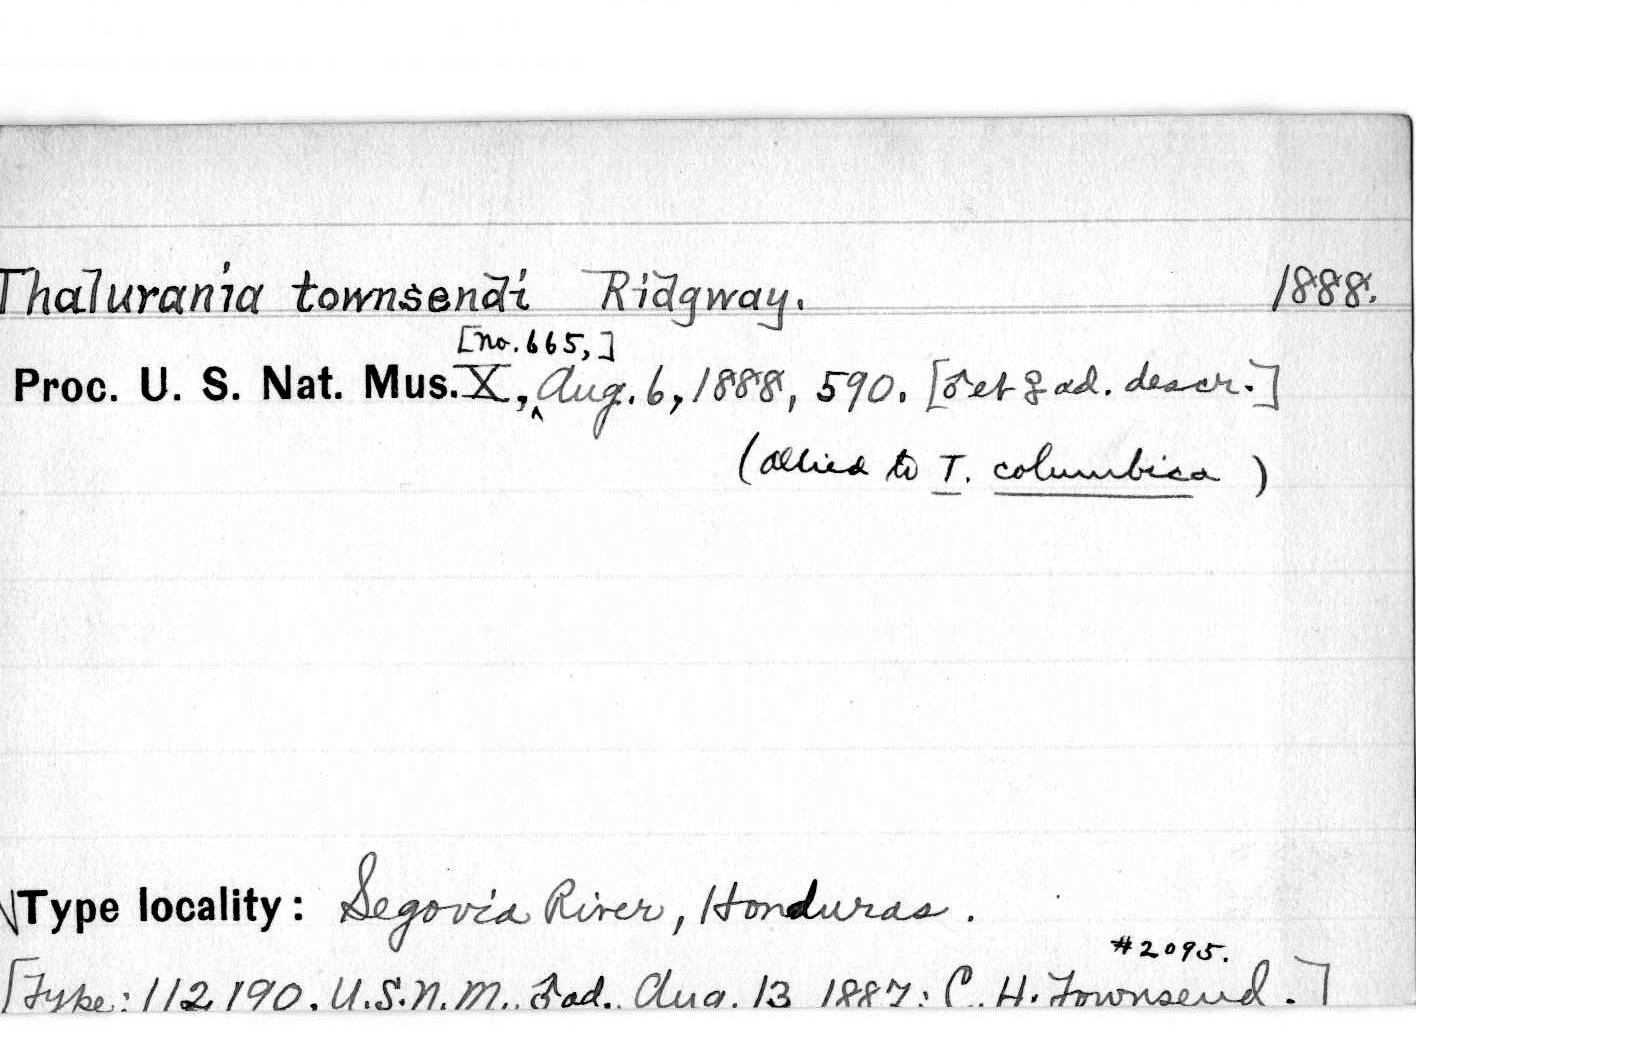 Thalurania townsendi Ridgway. 1888.
[no. 665,]
Proc. U. S. Nat. Mus. X, ‸ Aug. 6, 1888, 590. [♂ et ♀ ad. descr.]
(allied to T. columbica )
Type locality: Segovia River, Honduras.
#2095.
[Type: 112,190. U.S.N.M. ♂ ad. Aug. 13 1887: C. H. Townsend.]